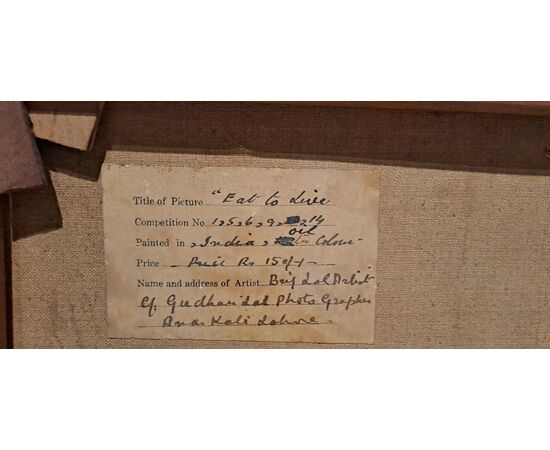 Title of Picture "Eat to Live
Competition No. 1,5,6,9, 14
oil
Painted in India, Colour
Price Price Rs 150/-
Name and address of Artist Brij Lal Artist
C/o Girdhari Lal Photo Grapher
Anar Kali Lahore.